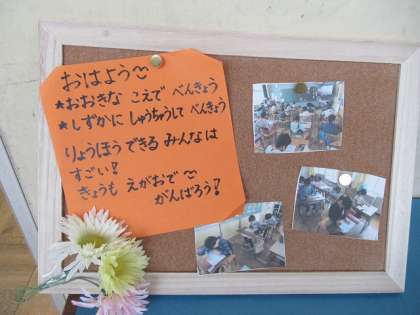 おはよう
★おおきな こえで べんきょう
★しずかに しゅうちゅうして べんきょう
りょうほう できる みんなは
すごい!
きょうも えがおで
がんばろう!